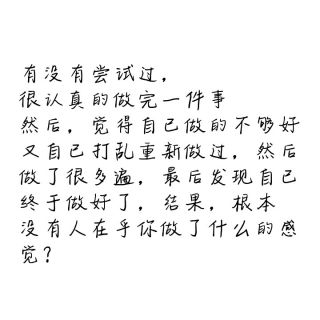 有没有尝试过，
很认真的做完一件事
然后，觉得自己做的不够好
又自己打乱重新做过，然后
做了很多遍，最后发现自己
终于做好了，结果，根本
没有人在乎你做了什么的感
觉？